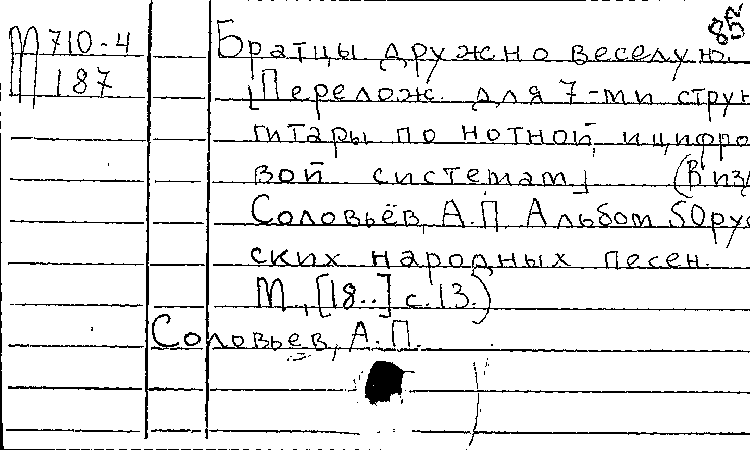 852
M 710-4
187
Братцы дружно веселую.
[Перелож. для 7-ми струн
гитары по нотной и цифро
вой системам] (В изд
Соловьёв, А.П. Альбом 50 рус
ских народных песен.
М., [18..] с.13.)
Соловьев, А.П.